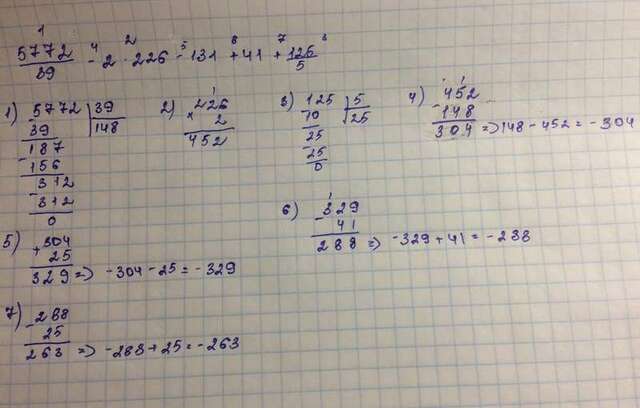 1 4 2 5 6 7 3
5772/39 - 2 · 226 - 131 + 41 + 125/5
1) 5772 | 39
- 39 | 148
187
- 156
312
- 312
0
2) 226
× 2
452
3) 125 | 5
10 | 25
25
- 25
0
4) 452
- 148
304 => 148 - 452 = -304
5) + 304
25
329 => -304 - 25 = -329
6) - 329
41
288 => -329 + 41 = -288
7) - 288
25
263 => -288 + 25 = -263